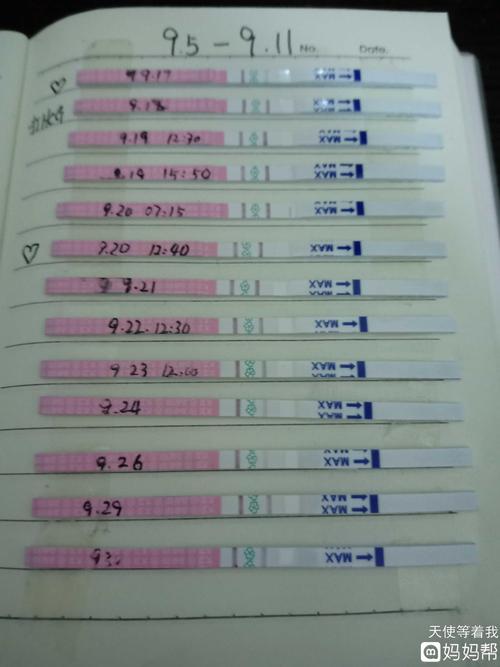 9.5 - 9.11 No. Date.
9.17 MAX
9.18 MAX
9.19 12:30 MAX
9.19 15:50 MAX
9.20 07:15 MAX
9.20 12:40 MAX
9.21 MAX
9.22. 12:30 MAX
9.23 12:00 MAX
9.24 MAX
9.26 MAX
9.29 MAX
MAX
天使等着我
妈妈帮